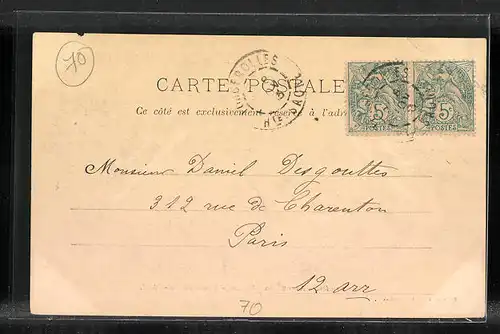 70
CARTE POSTALE
Ce côté est exclusivement réservé à l'adr
5ᶜ 5ᶜ
POSTES POSTES
Monsieur Daniel Desgouttes
312 rue de Charenton
Paris
12 arr
70